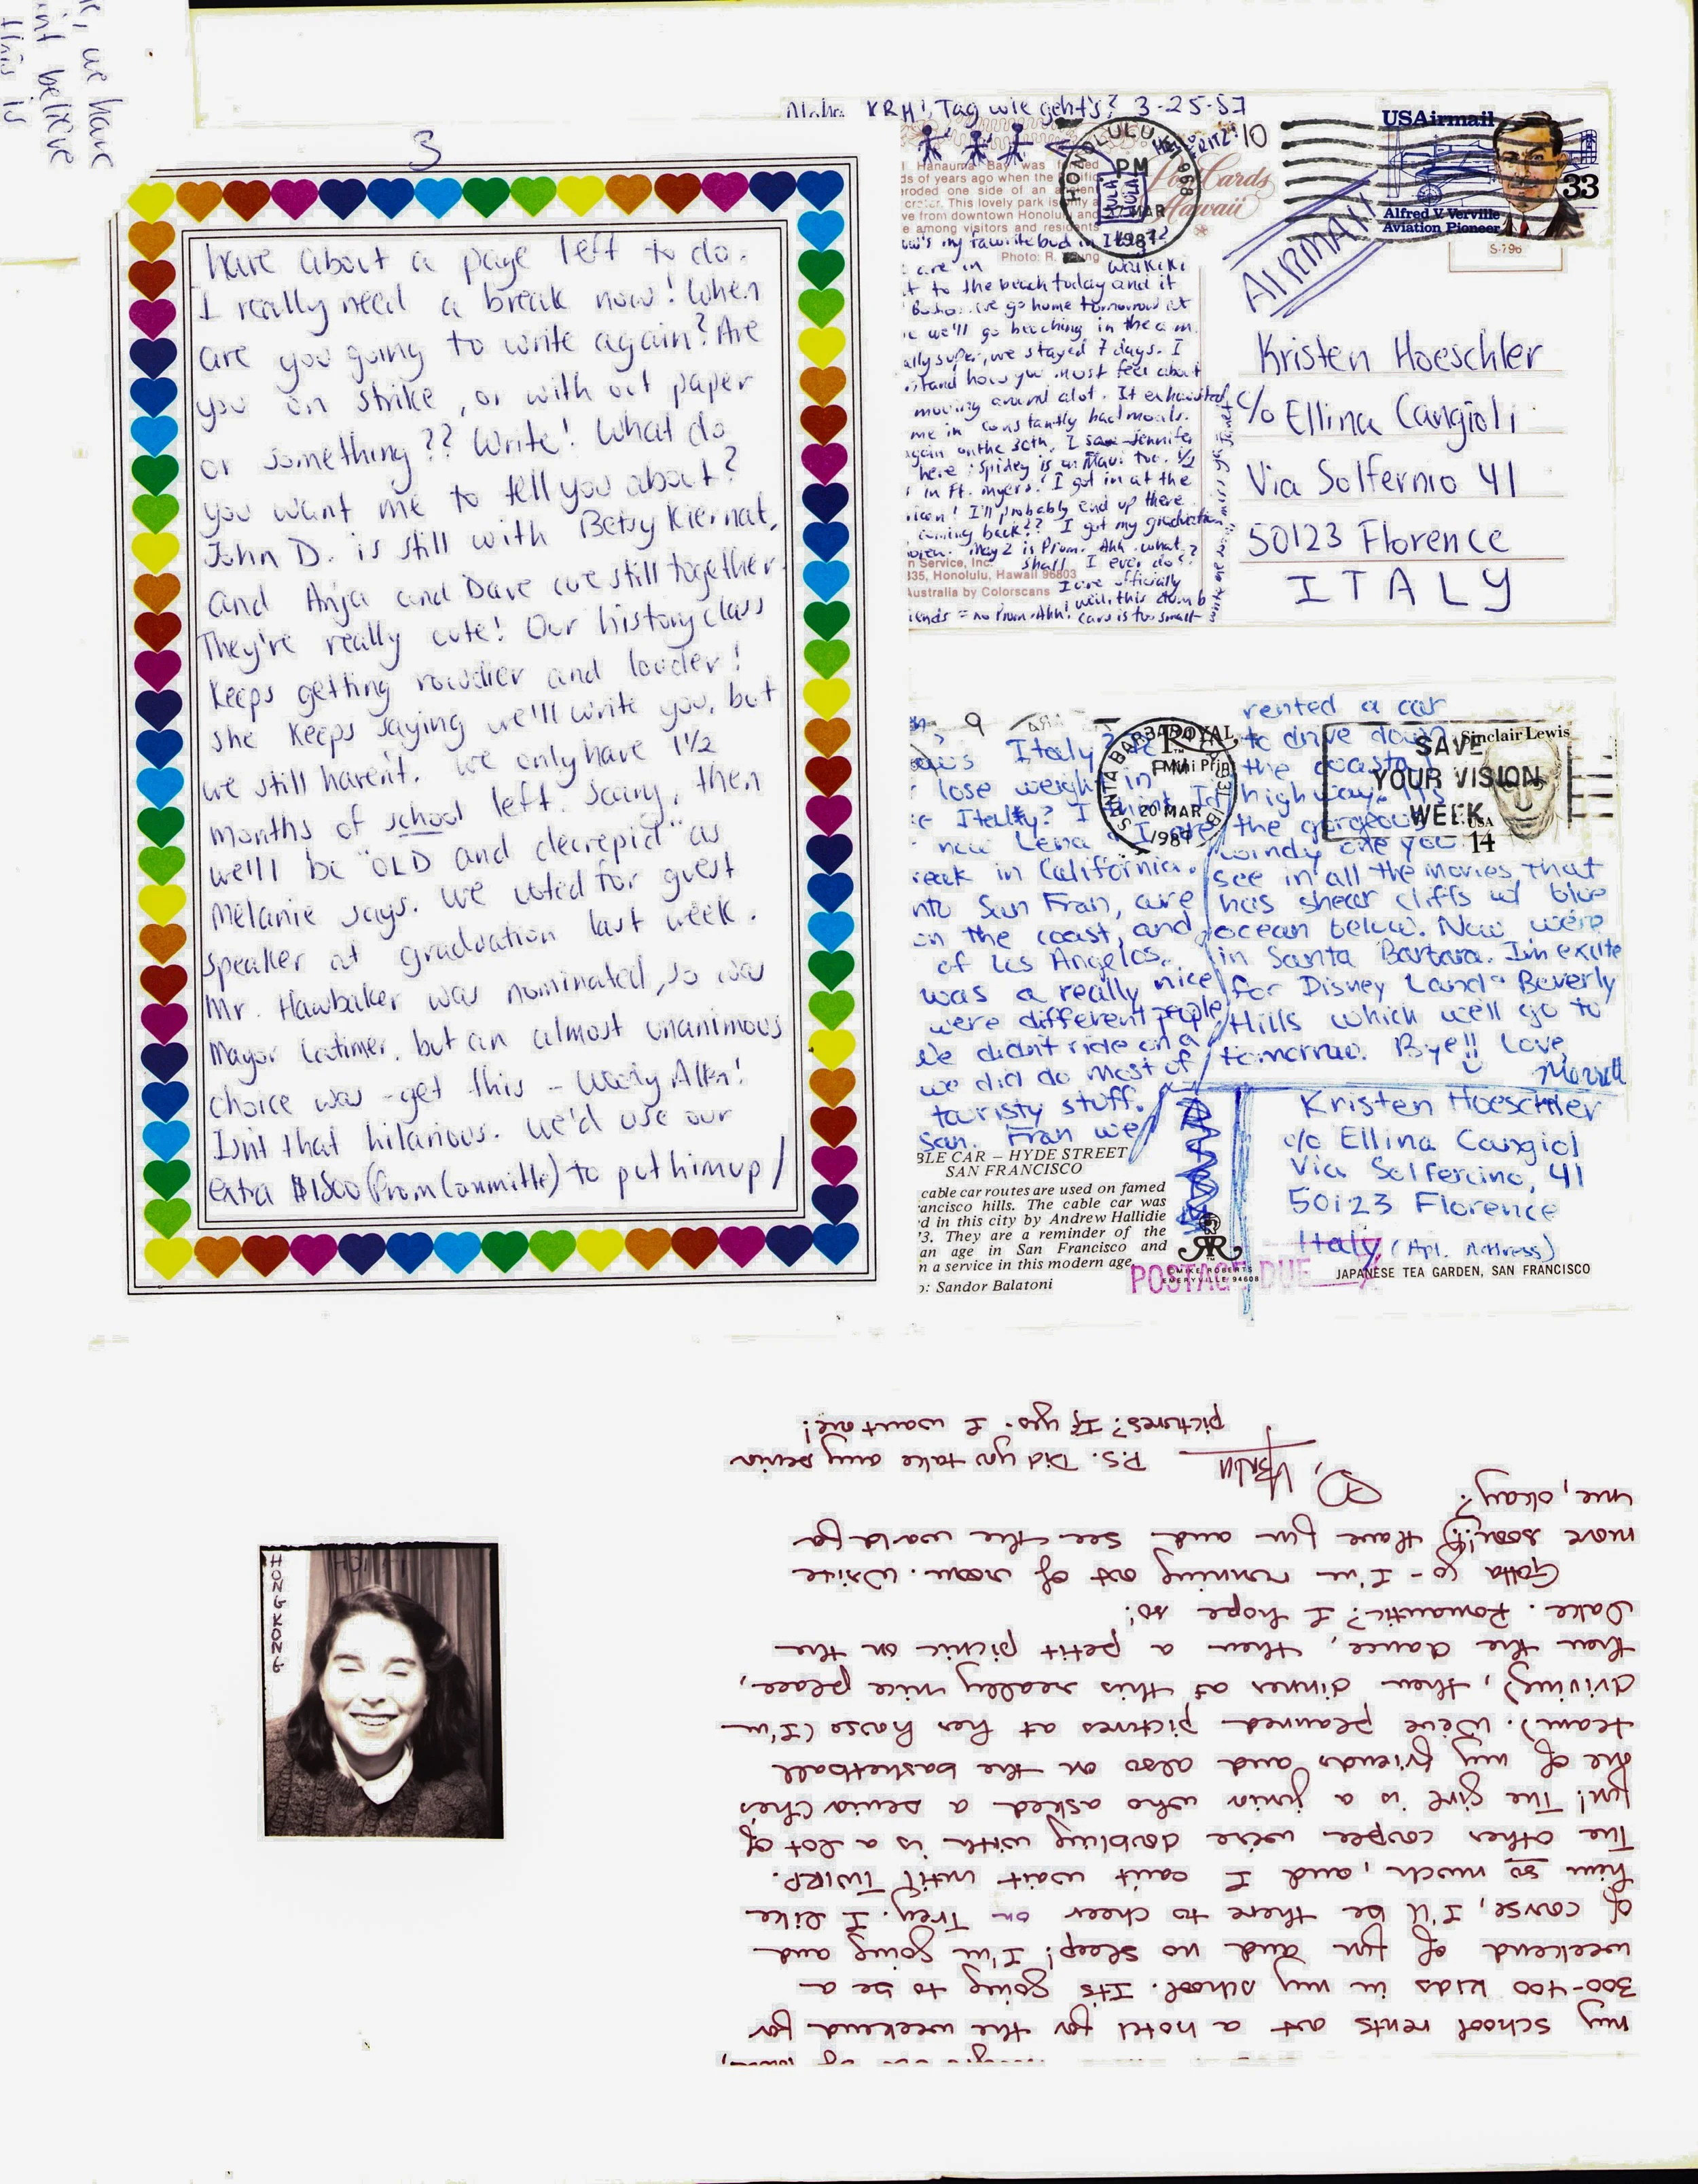 we have
believe
this is
3
have about a page left to do.
I really need a break now! When
are you going to write again? Are
you on strike, or with out paper
or something?? Write! What do
you want me to tell you about?
John D. is still with Betsy Kiernat,
and Anja and Dave are still together.
They're really cute! Our history class
keeps getting rowdier and louder!
she keeps saying we'll write you, but
we still haven't. We only have 1 1/2
months of school left. Scary, then
we'll be "OLD and decrepid" as
Melanie says. We voted for guest
speaker at graduation last week.
Mr. Hawbaker was nominated, so was
Mayor Latimer, but an almost unanimous
choice was - get this - Woody Allen!
Isn't that hilarious. We'd use our
extra $1800 (Prom Committe) to put him up/
Aloha KRH! Tag wie geht's? 3-25-87
Hanauma Bay was formed
ds of years ago when the Pacific
eroded one side of an ancient
crater. This lovely park is only a
ve from downtown Honolulu and
e among visitors and residents
Photo: R.
Post Cards
Hawaii
HONOLULU, HI 968
PM
MAR
1987
USAirmail
33
Alfred V. Verville
Aviation Pioneer
S-796
AIRMAIL
my favorite bud in Italy?
are in Waikiki
t to the beach today and it
we go home tomorrow at
we'll go beaching in the a.m.
ally super, we stayed 7 days. I
stand how you must feel about
moving around alot. It exhausted
me in constantly bad moods.
again on the 30th. I saw Jennifer
here; Spidey is in Maui too. 1/2
in Ft. Myers! I got in at the
I'll probably end up there.
coming back?? I got my graduation
May 2 is Prom. Ahh. what
shall I ever do?
n Service, Inc.
335, Honolulu, Hawaii 96803
Australia by Colorscans
are officially
iends = no Prom. Ahh! well, this dumb
card is too small
Kristen Hoeschler
c/o Ellina Cangioli
Via Solfernio 41
50123 Florence
ITALY
Italy?
lose weight in
Italy? I think I'd
now Lena & I are
reak in California.
nto San Fran, are
on the coast, and
of Los Angelos.
was a really nice
were different people
We didn't ride on a
we did do most of
touristy stuff.
San. Fran we
rented a car
to drive down
the coastal
highway. It's
the gorgeous
windy one you
see in all the movies, that
has shear cliffs w/ blue
ocean below. Now we're
in Santa Barbara. I'm excite
for Disney Land & Beverly
Hills which we'll go to
tomorrow. Bye!! Love,
Merrill
SANTA BARBARA
PM
20 MAR
1987
ROYAL
SAVE
YOUR VISION
WEEK
Sinclair Lewis
USA
14
BLE CAR – HYDE STREET
SAN FRANCISCO
cable car routes are used on famed
ancisco hills. The cable car was
d in this city by Andrew Hallidie
'3. They are a reminder of the
an age in San Francisco and
n a service in this modern age.
o: Sandor Balatoni
© MIKE ROBERTS
EMERYVILLE 94608
POSTAGE DUE
Kristen Hoeschler
c/o Ellina Cangiol
Via Solfercino, 41
50123 Florence
Italy (Apt. Address)
JAPANESE TEA GARDEN, SAN FRANCISCO
HONG KONG
my school rents out a hotel for the weekend for
300-400 kids in my school. Its going to be a
weekend of fun and no sleep! I'm going and
of course, I'll be there to cheer on Trey. I like
him so much, and I can't wait until TWIRP.
The other couple we're doubling with is a lot of
fun! The girl is a junior who asked a senior (he's
one of my friends and also on the basketball
team). We've planned pictures at her house (I'm
driving), then dinner at this really nice place,
then the dance, then a petit picnic on the
lake. Romantic? I hope so!
Gotta go - I'm running out of room. Write
more soon!! Have fun and see the world for
me, okay?
P.S. Did you take any senior
pictures? If yes - I want one!